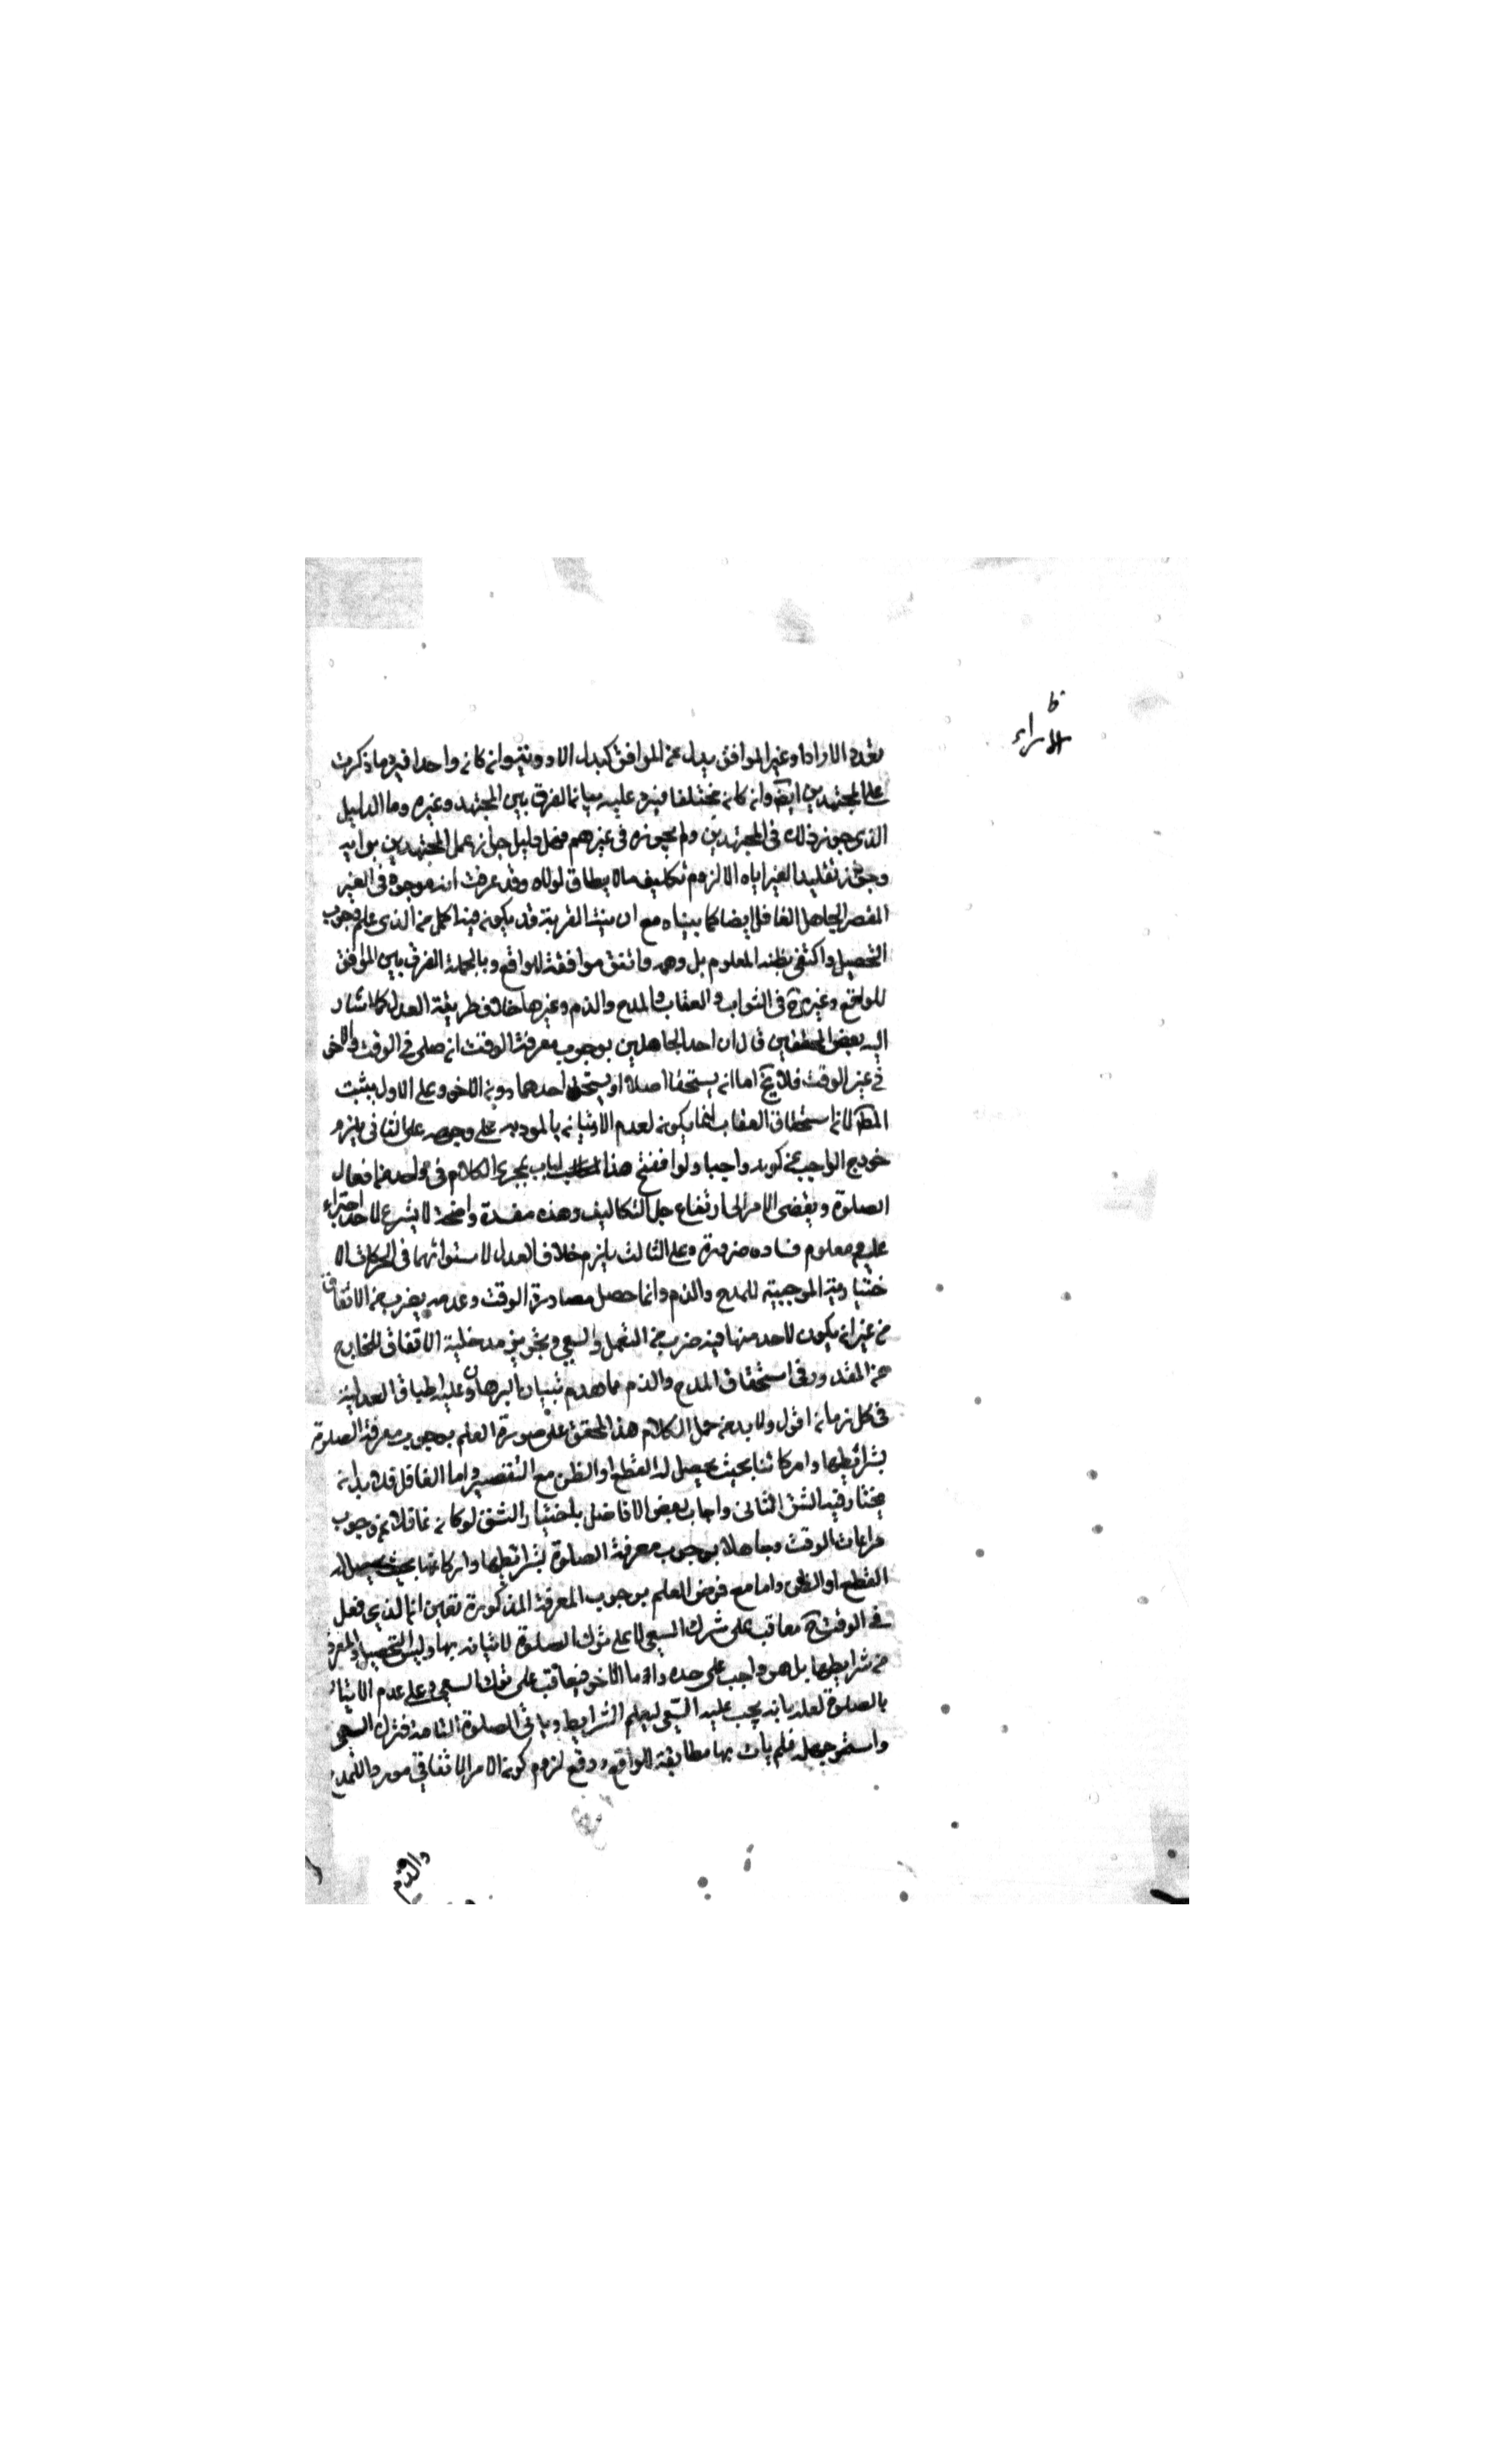 ظ
الآراء
تعدد الاراء او غير الموافق بدل عن الموافق كبدل الادونية وان كان واحدا فيرد ما ذكرت
على المجتهدين ايضا وان كان مختلفا فيرد عليه بيان الفرق بين المجتهد وغيره وما الدليل
الذى جوز ذلك فى المجتهدين ولم يجوزه فى غيرهم فهل دليل جواز عمل المجتهدين برايه
وجواز تقليد الغير اياه الا لزوم تكليف مالا يطاق لولاه وقد عرفت انه موجود فى الغير
المقصر الجاهل الغافل ايضا كما بيناه مع ان نية القربة قد يكون فيه اكمل من الذى علم وجوب
التحصيل واكتفى بظنه المعلوم بل وهمه واتفق موافقة للواقع وبالجملة الفرق بين الموافق
للواقع وغيره فى الثواب والعقاب والمدح والذم وغيرها خلاف طريقة العدل كما اشار
اليه بعض المحققين قال ان احد الجاهلين بوجوب معرفة الوقت ان صلى فى الوقت والاخر
فى غير الوقت فلا يخ اما ان يستحقا اصلا او يستحق احدهما دون الاخر وعلى الاول يثبت
المط لان استحقاق العقاب انما يكون لعدم الاتيان بالمودبه على وجهه على الثانى يلزم
خروج الواجب عن كونه واجبا ولو انفتح هذا الباب يجرى الكلام فى كل واحد من افعال
الصلوة ويقضى الامر الى ارتفاع جل التكاليف وهذه مفسدة واضحة لا يشرع لاحد اجتراء
عليه ومعلوم فساده ضرورة وعلى الثالث يلزم خلاف العدل لاستوائهما فى الحركات الا
ختيارية الموجبة للمدح والذم وانما حصل مصادفة الوقت وعدمه بضرب من الاتفاق
من غير ان يكون لاحد منهما فيه ضرب من التعمل والسعى وتجويز مدخلية الاتفاق الخارج
عن المقدور فى استحقاق المدح والذم مما هدم بنيانه البرهان وعليه اطباق العدلية
فى كل زمان اقول ولا بد من حمل الكلام هذا المحقق على صورة العلم بوجوب معرفة الصلوة
بشرائطها واركانها بحيث يحصل له القطع او الظن مع التقصير واما الغافل فلا بد ان
يختار فيه الشق الثانى واجاب بعض الافاضل باختيار الشق لو كان غافلا عن وجوب
مراعات الوقت وجاهلا بوجوب معرفة الصلوة بشرائطها واركانها بحيث يحصل له
القطع او الظن واما مع فرض العلم بوجوب المعرفة المذكورة نعين ان الذى فعل
فى الوقت معاقب على ترك السعى لا على ترك الصلوة لاتيانه بها وليس التحصيل والمعرفة
من شرايطها بل هو واجب على حده واما الاخر فيعاقب على ترك السعى وعلى عدم الاتيان
بالصلوة لعلمه بانه يجب عليه السعى ليعلم الشرايط وياتى الصلوة التامة فترك السعى
واستمر جهله فلم يات بها مطابقة للواقع ودفع لزوم كون الامر الاتفاقى موردا للمدح
والذم